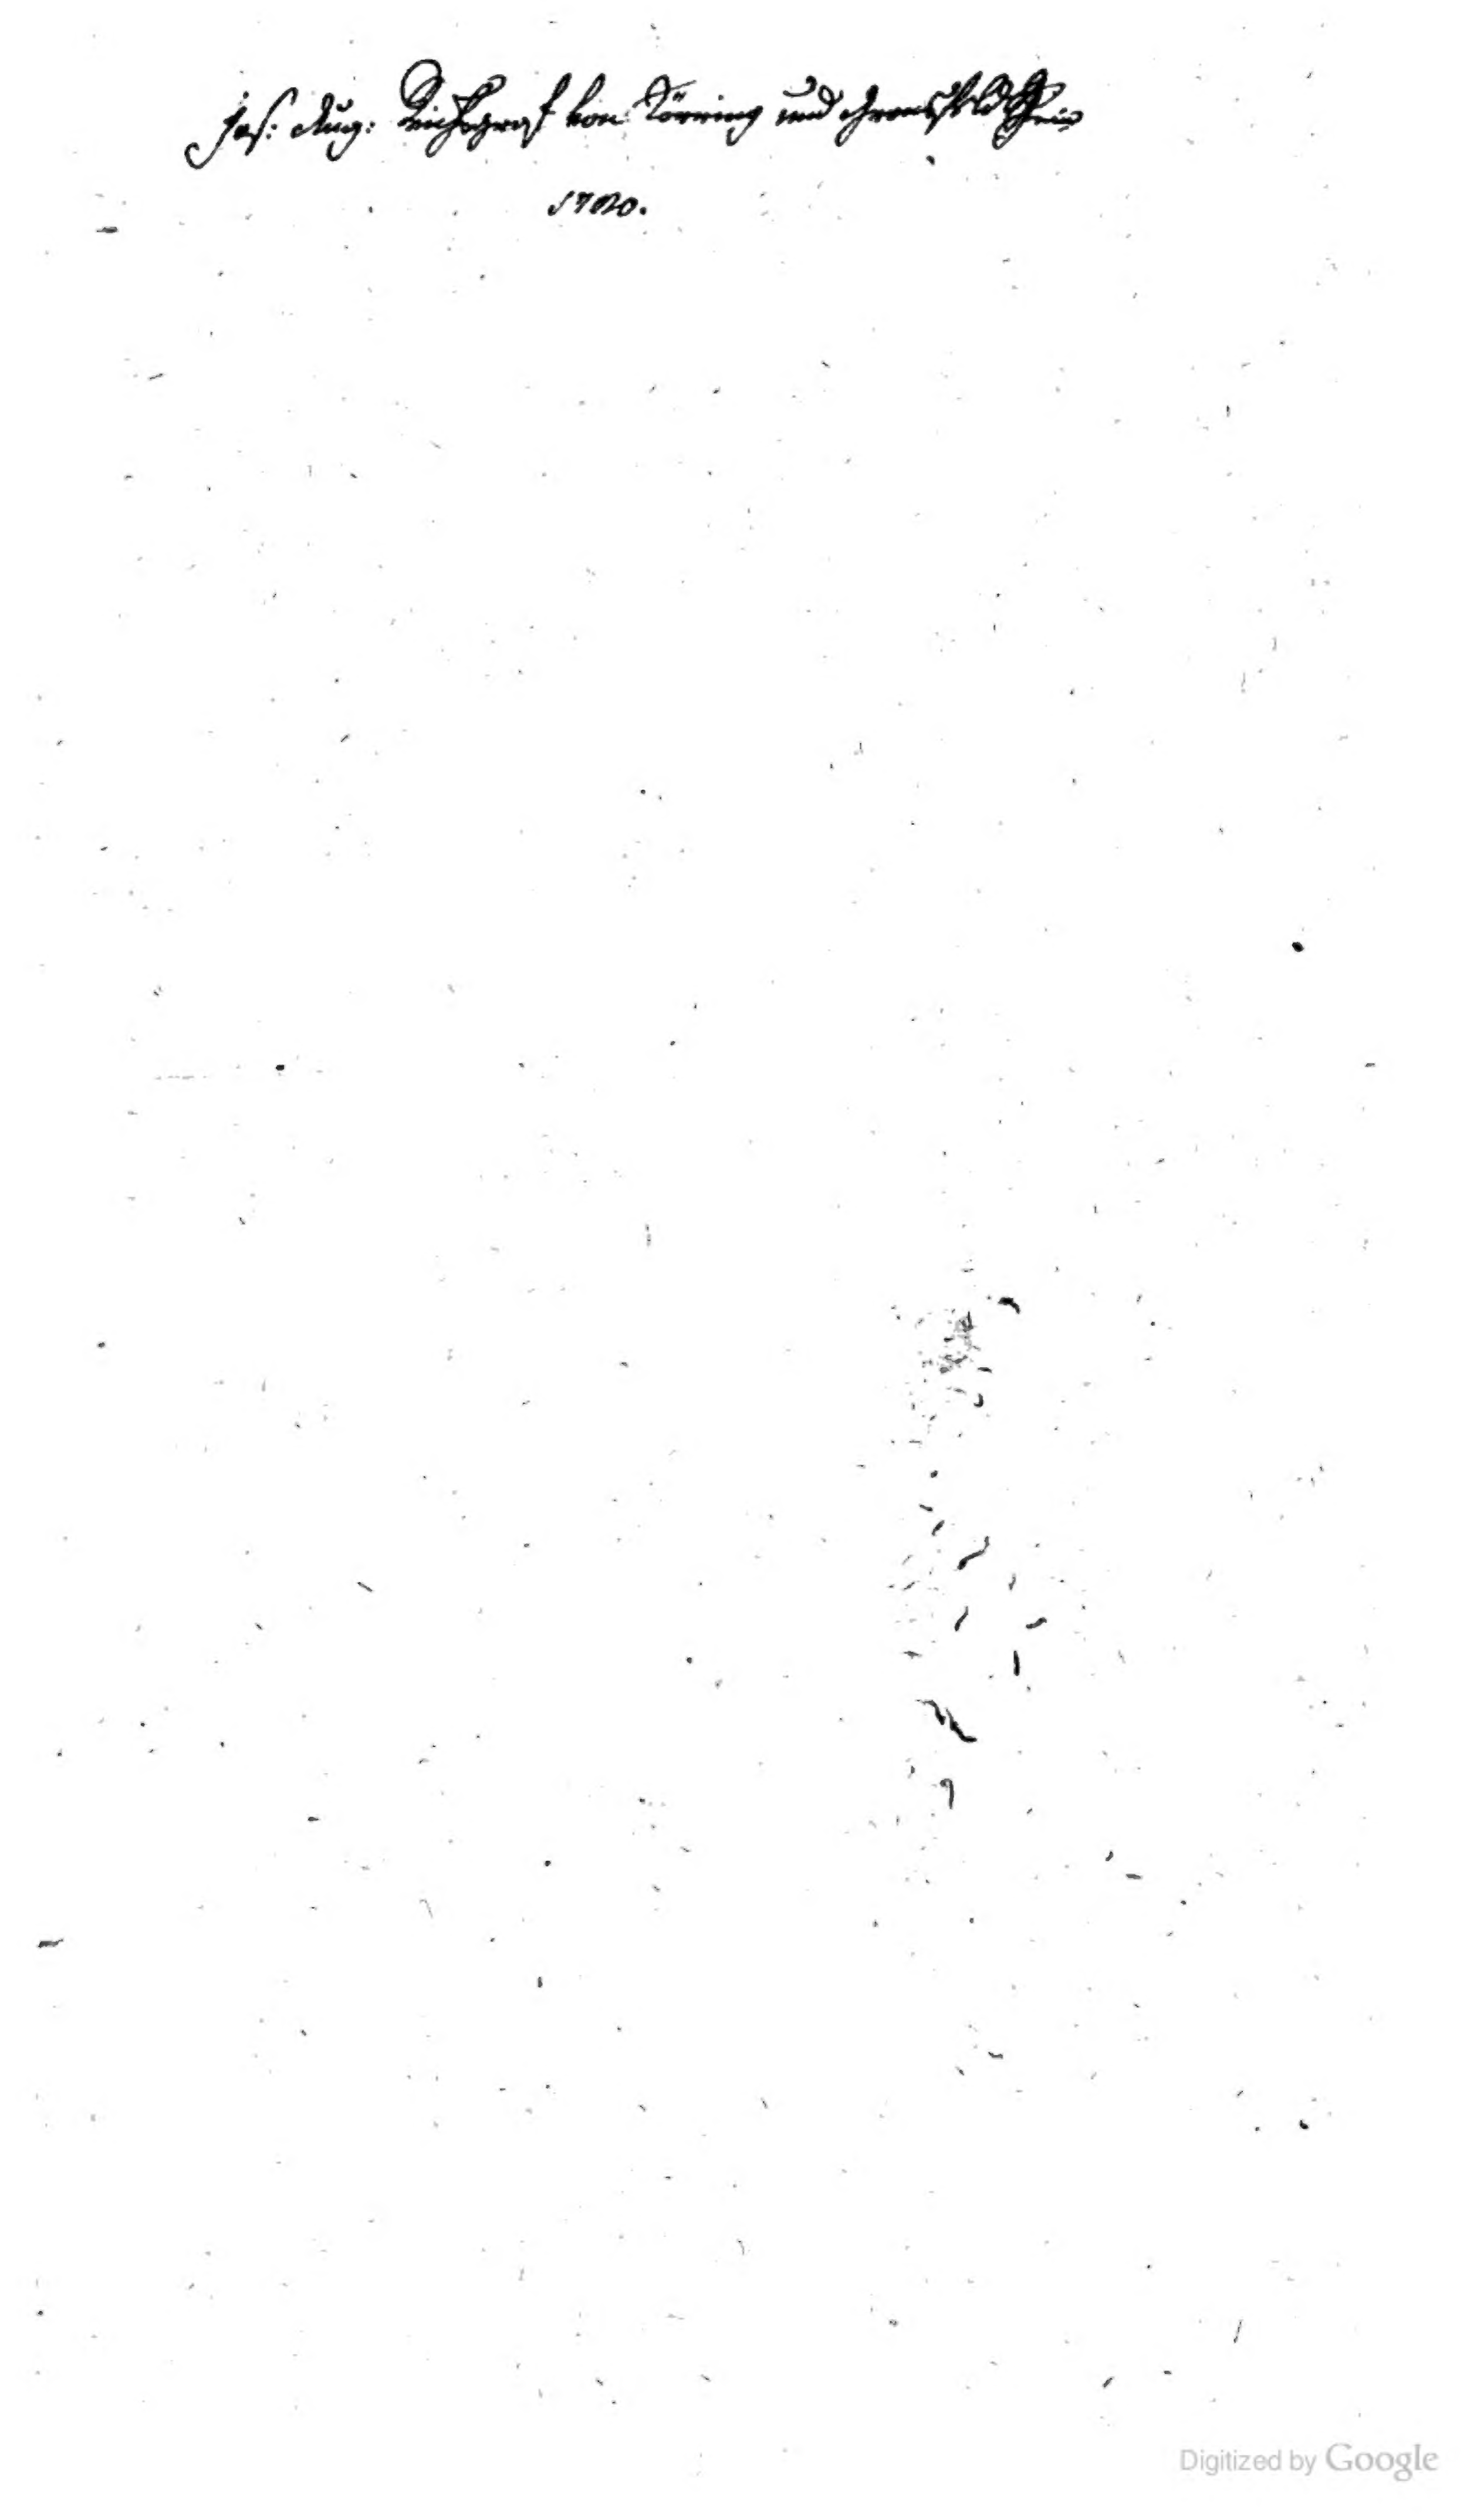 Jos: Aug: Reichsgraf von Törring und
1780.
Digitized by Google